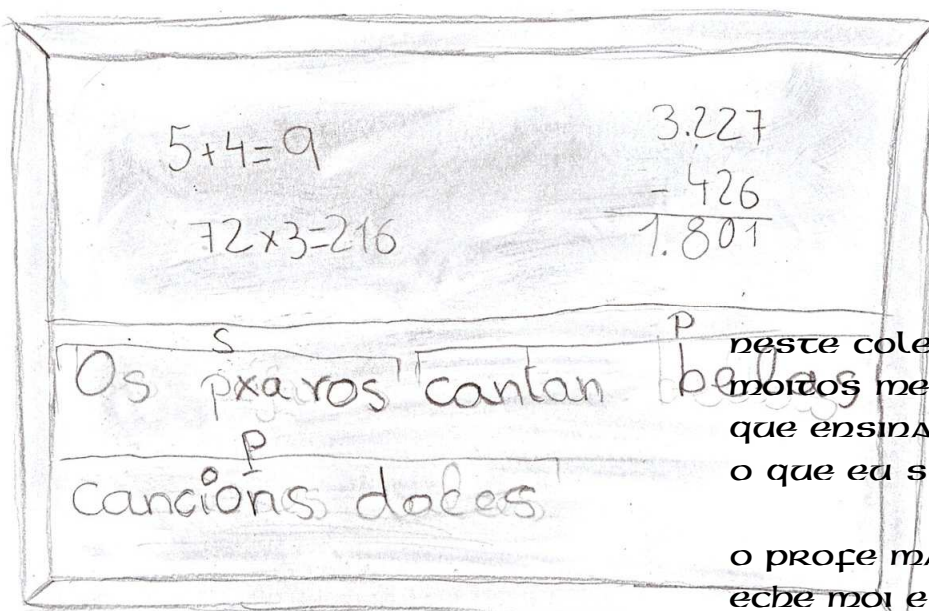 5+4=9
72x3=216
3.227
- 426
1.801
S
P
Os pxaros cantan belas
P
cancións doces
neste cole
moitos me
que ensina
o que eu s
o profe ma
eche moi e